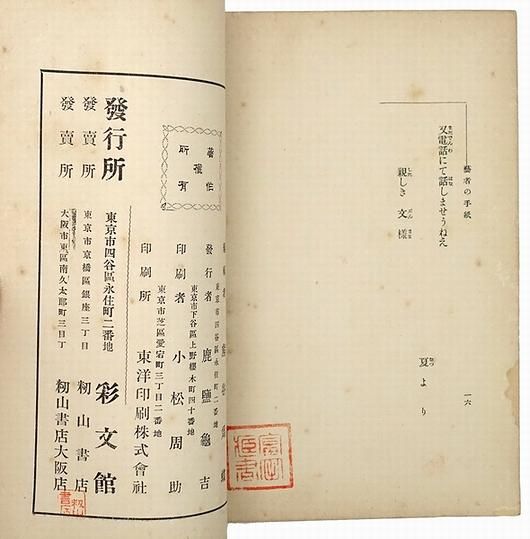 藝者の手紙
又電話にて話しませうねえ
親しき文樣
夏より
一六
著作權所有
東京市四谷區永住町二番地
發行者 鹿鹽龜吉
東京市下谷區上野櫻木町四十番地
印刷者 小松周助
東京市芝區愛宕町三丁目二番地
印刷所 東洋印刷株式會社
發行所 東京市四谷區永住町二番地 彩文館
發賣所 東京市京橋區銀座三丁目 籾山書店
發賣所 大阪市東區南久太郎町三目丁 籾山書店大阪店